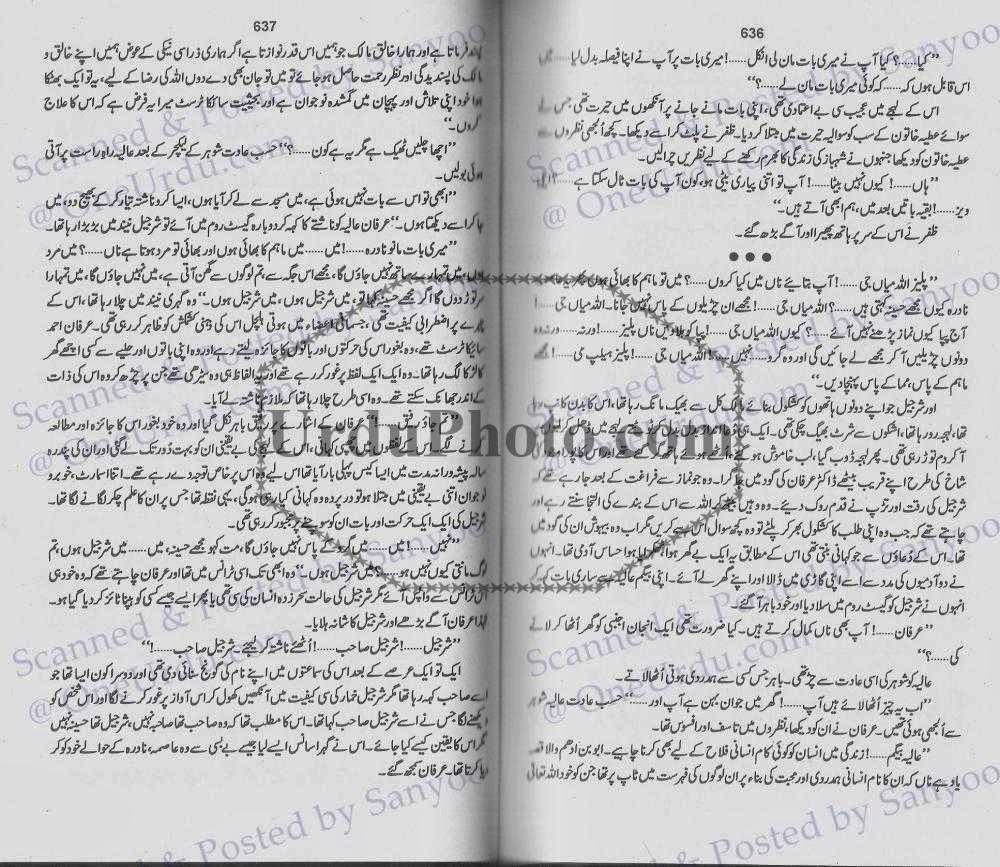 636
”کیا......؟ کیا آپ نے میری بات مان لی انکل......! میری بات پر آپ نے اپنا فیصلہ بدل لیا......
اس قابل ہوں کہ......کہ کوئی میری بات مان لے......؟“
اس کے لہجے میں عجیب سی بے اعتمادی تھی، اپنی بات مانے جانے پر آنکھوں میں حیرت تھی جس نے
سوائے عطیہ خاتون کے سب کو سوالیہ حیرت میں مبتلا کر دیا۔ ظفر نے پلٹ کر اسے دیکھا۔ کچھ اُلجھی نظروں سے
عطیہ خاتون کو دیکھا جنہوں نے شہباز کی زندگی کا بھرم رکھنے کے لیے نظریں چرا لیں۔
”ہاں......! کیوں نہیں بیٹا......! آپ تو اتنی پیاری بیٹی ہو، کون آپ کی بات ٹال سکتا ہے......
ویز......! بقیہ باتیں بعد میں، ہم ابھی آتے ہیں۔“
ظفر نے اس کے سر پر ہاتھ پھیرا اور آگے بڑھ گئے۔
●●●
”پلیز اللہ میاں جی......! آپ بتائیے ناں میں کیا کروں......؟ میں تو ماہم کا بھائی ہوں
نادرہ کیوں مجھے حسینہ کہتی ہیں......؟ اللہ میاں جی......! مجھے ان چڑیلوں کے پاس نہیں جانا۔ اللہ میاں جی......!
آج پپا کیوں نماز پڑھنے نہیں آئے......؟ کیوں اللہ میاں جی......! پپا کو بلا دیں ناں پلیز......! ورنہ......ورنہ وہ
دونوں چڑیلیں آ کر مجھے لے جائیں گی اور وہ گرو......نہیں......! اللہ میاں جی......! پلیز ہیلپ می......! مجھے
ماہم کے پاس، مما کے پاس پہنچا دیں۔“
اور شرجیل جو اپنے دونوں ہاتھوں کو کشکول بنائے مالک کل سے بھیک مانگ رہا تھا، اس کا بدن کانپ رہا
تھا، لہجہ رو رہا تھا، اشکوں سے شرٹ بھیگ چکی تھی۔
آ کر دم توڑ رہی تھی۔ پھر لہجہ ڈوب گیا، لب خاموش ہو گئے
شاخ کی طرح اپنے قریب بیٹھے ڈاکٹر عرفان کی گود میں جا گرا۔ وہ جو نماز سے فراغت کے بعد جا رہے تھے کہ
شرجیل کی رقت اور تڑپ نے قدم روک دیئے۔ وہ وہیں بیٹھ کر اللہ سے اس کے بندے کی التجا سنتے رہے اور
چاہتے تھے کہ جب وہ اپنی طلب کا کشکول بھر کر پلٹے تو وہ کچھ سوال اس سے کریں مگر اب وہ بیہوش ان کی گود میں
تھا۔ اس کے دُعاؤں سے جو کہانی بنتی تھی اس کے مطابق یہ ایک بے گھر ہوا، ٹھکرایا ہوا حساس آدمی تھا۔ انہوں
نے دو آدمیوں کی مدد سے اسے اپنی گاڑی میں ڈالا اور اپنے گھر لے آئے۔ اپنی بیگم عالیہ سے ساری بات کہہ کر
انہوں نے شرجیل کو گیسٹ روم میں سلا دیا اور خود باہر آ گئے۔
”عرفان......! آپ بھی ناں کمال کرتے ہیں۔ کیا ضرورت تھی ایک انجان اجنبی کو گھر اُٹھا کر لانے
کی......؟“
عالیہ کو شوہر کی اسی عادت سے چڑ تھی۔ باہر جس کسی سے ہمدردی ہوتی اُٹھا لاتے۔
”اب یہ چیز اُٹھا لائے ہیں آپ......! گھر میں جوان بہن ہے آپ اور......“ حسب عادت عالیہ شوہر
سے اُلجھی ہوئی تھیں۔ عرفان نے ان کو دیکھا، نظروں میں تاسف اور افسوس تھا۔
”عالیہ بیگم......! زندگی میں انسان کو کوئی کام انسانی فلاح کے لیے بھی کرنا چاہیے۔ ابو بن ادھم والا قصہ
یاد ہے ناں کہ ان کا نام انسانی ہمدردی اور محبت کی بناء پر ان لوگوں کی فہرست میں ٹاپ پر تھا جن کو خود اللہ تعالیٰ
637
پسند فرماتا ہے اور ہمارا خالق مالک جو ہمیں اس قدر نوازتا ہے اگر ہماری ذرا سی نیکی کے عوض ہمیں اپنے خالق و
مالک کی پسندیدگی اور نظر رحمت حاصل ہو جائے تو میں تو جان بھی دے دوں اللہ کی رضا کے لیے، یہ تو ایک بھٹکا
ہوا خود اپنی تلاش اور پہچان میں گمشدہ نوجوان ہے اور بحیثیت سائیکاٹرسٹ میرا یہ فرض ہے کہ اس کا علاج
کروں۔“
”اچھا چلیں ٹھیک ہے مگر یہ ہے کون......؟“ حسب عادت شوہر کے لیکچر کے بعد عالیہ راہ راست پر آتی
ہوئی بولیں۔
”ابھی تو اس سے بات نہیں ہوئی ہے، میں مسجد سے لے کر آیا ہوں، ایسا کرو ناشتہ تیار کر کے بھیج دو، میں
جا کر اسے دیکھتا ہوں۔“ عرفان عالیہ کو ناشتے کا کہہ کر دوبارہ گیسٹ روم میں آئے تو شرجیل نیند میں بڑبڑا رہا تھا۔
”میری بات مانو نادرہ......! میں......میں ماہم کا بھائی ہوں اور بھائی تو مرد ہوتا ہے ناں......؟ میں مرد
ہوں، میں تمہارے ساتھ نہیں جاؤں گا، مجھے اس جگہ سے، تم لوگوں سے گھن آتی ہے، میں نہیں جاؤں گا، میں تمہارا
سر توڑ دوں گا اگر مجھے حسینہ کہا تو، میں شرجیل ہوں، میں شرجیل ہوں۔“ وہ گہری نیند میں چلا رہا تھا، اس کے
چہرے پر اضطرابی کیفیت تھی، جسمانی اعضاء میں ہوتی ہلچل اس کی ذہنی کشمکش کو ظاہر کر رہی تھی۔ عرفان احمد
سائیکاٹرسٹ تھے، وہ بغور اس کی حرکتوں اور باتوں کا جائزہ لیتے رہے اور وہ اپنی باتوں اور حلیے سے کسی اچھے گھر
کا لڑکا لگ رہا تھا۔ وہ ایک ایک لفظ پر غور کر رہے تھے اور یہ الفاظ ہی وہ سیڑھی تھے جن پر چڑھ کر وہ اس کی ذات
کے اندر جھانک سکتے تھے۔ وہ اسی طرح چلا رہا تھا کہ ملازم ناشتہ لے آیا۔
”تم جاؤ رفیق......!“ عرفان کے اشارے پر رفیق باہر نکل گیا اور وہ خود بغور اس کا جائزہ اور مطالعہ
نے لگے۔ اس کے لفظوں میں سچائی تھی، اس کے لہجے کی بے یقینی ان کو بہت دُور تک لے گئی اور ان کی پندرہ
سالہ پیشہ ورانہ مدت میں ایسا کیس پہلی بار آیا تھا اس لیے وہ اس پر خاص توجہ دے رہے تھے۔ اتنا اسمارٹ، خوبرو
نوجوان اتنی بے یقینی میں مبتلا ہو تو در پردہ وہ کہانی کیا رہی ہوگی، یہی نقطہ تھا جس پر ان کا علم چکرانے لگا تھا۔
شرجیل کی ایک ایک حرکت اور بات ان کو سوچنے پر مجبور کر رہی تھی۔
”نہیں......! میں......میں گرو کے پاس نہیں جاؤں گا، مت کہو مجھے حسینہ، میں......میں شرجیل ہوں، تم
لوگ مانتی کیوں نہیں ہو......؟ میں شرجیل ہوں۔“ وہ ابھی تک اسی ٹرانس میں تھا اور عرفان چاہتے تھے کہ وہ خود ہی
اس ٹرانس سے واپس آئے مگر شرجیل کی حالت سحر زدہ انسان کی سی تھی یا پھر ایسے جیسے کسی کو ہپناٹائز کر دیا گیا ہو۔
لہٰذا عرفان آگے بڑھے اور شرجیل کا شانہ ہلایا۔
”شرجیل......! شرجیل صاحب......! اُٹھئے ناشتہ کر لیجئے شرجیل صاحب......!“
ایک تو ایک عرصے کے بعد اس کی سماعتوں میں اپنے نام کی گونج سنائی دی تھی اور دوسرا کون ایسا تھا جو
اسے صاحب کہہ رہا تھا مگر شرجیل خماری کی سی کیفیت میں آنکھیں کھول کر اس آواز پر غور کرنے لگا اور اس شخص کو
دیکھنے لگا جس نے اسے شرجیل صاحب کہا تھا۔ اس کا مطلب تھا کہ وہ صاحب تھا صاحبہ نہیں، شرجیل تھا حسینہ نہیں
مگر اس کا یقین کیسے کیا جائے۔ اس نے گہرا سانس ایسے لیا جیسے بے بسی سے وہ عاصمہ، نادرہ کے حوالے خود کو کر
دیا کرتا تھا۔ عرفان سمجھ گئے۔
UrduPhoto.com
Scanned & Posted by Sanyoo
@ OneUrdu.com